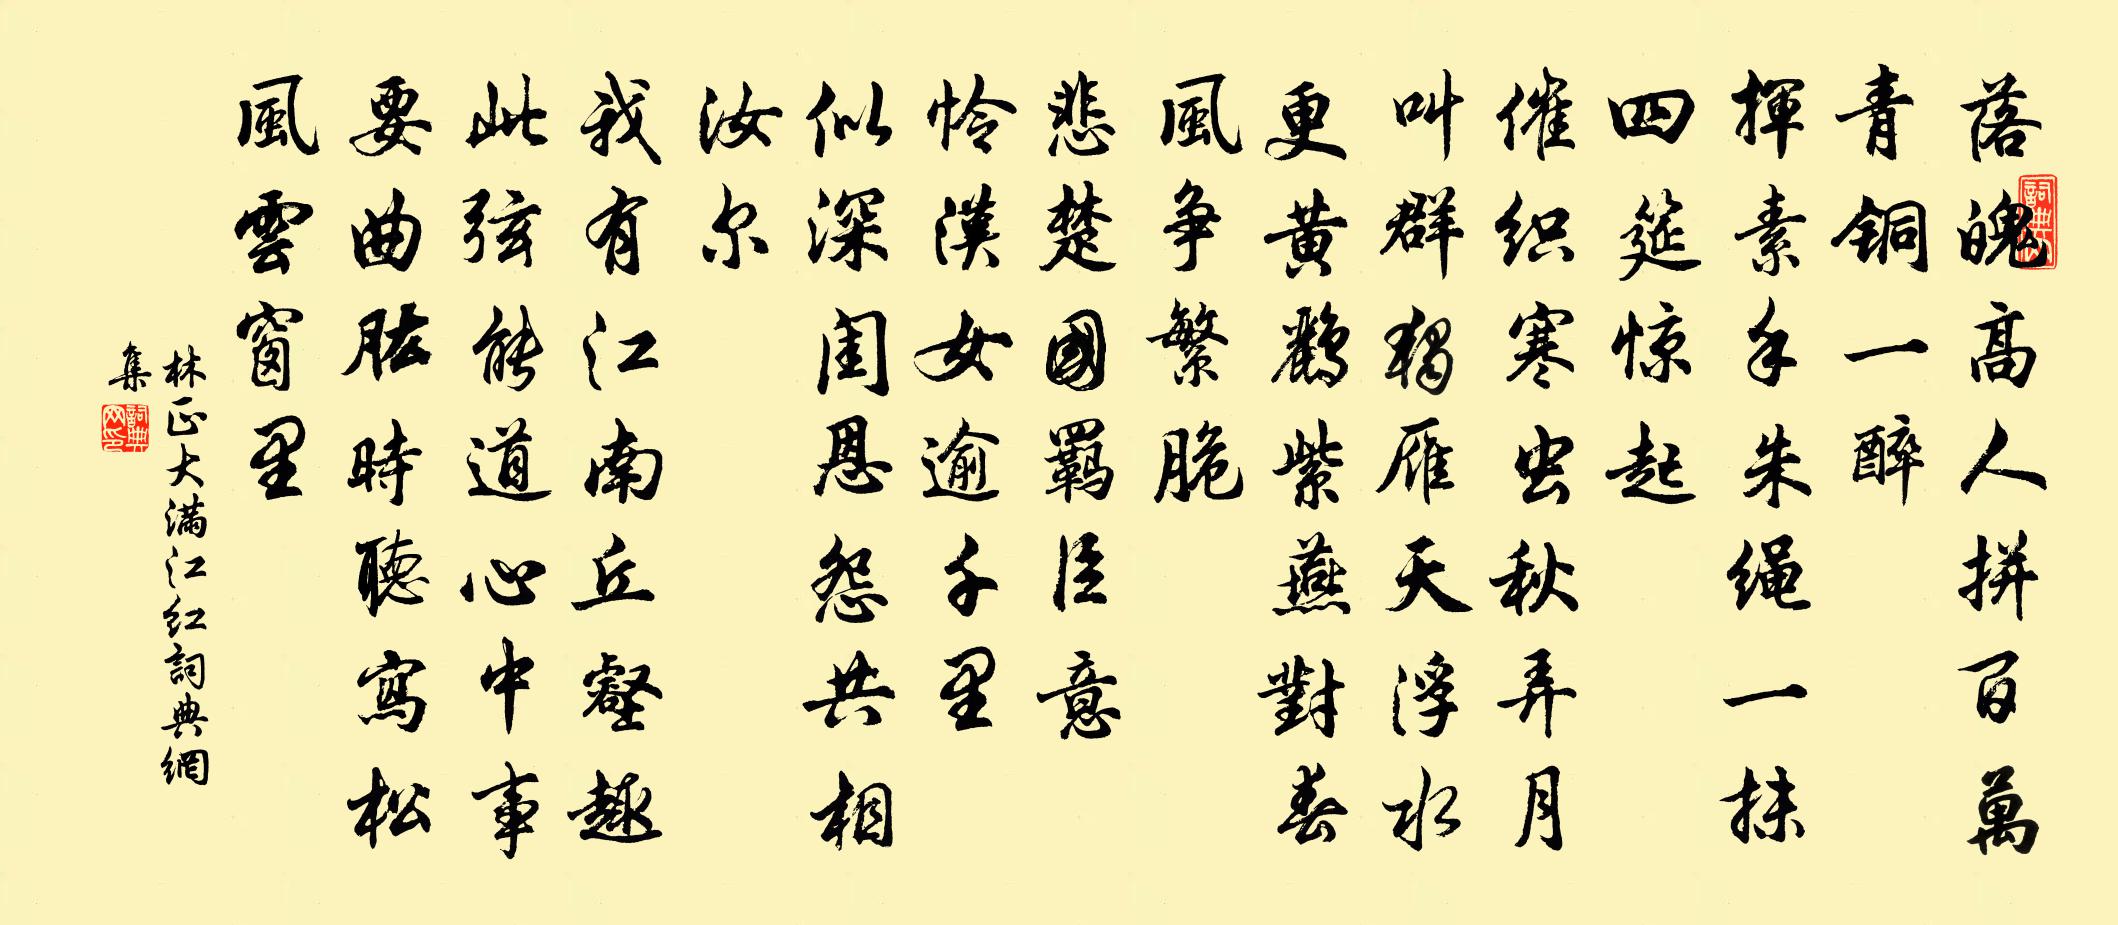 落魄高人拼百萬
青铜一醉
揮素手朱绳一抹
四筵惊起
催织寒虫秋弄月
叫群独雁天浮水
更黄鸝紫燕對春
風争繁脆
悲楚國羁臣意
怜漢女逾千里
似深闺恩怨共相
汝尔
我有江南丘壑趣
此弦能道心中事
要曲肱時聽寫松
風雲窗里
林正大满江红詞典網
集
詞典
詞典网印